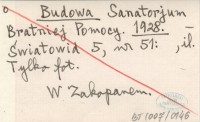 Budowa Sanatorjum
Bratniej Pomocy. 1928. –
Światowid 5, nr 51: , il.
Tylko fot.
W Zakopanem.
BJ 1007/0146